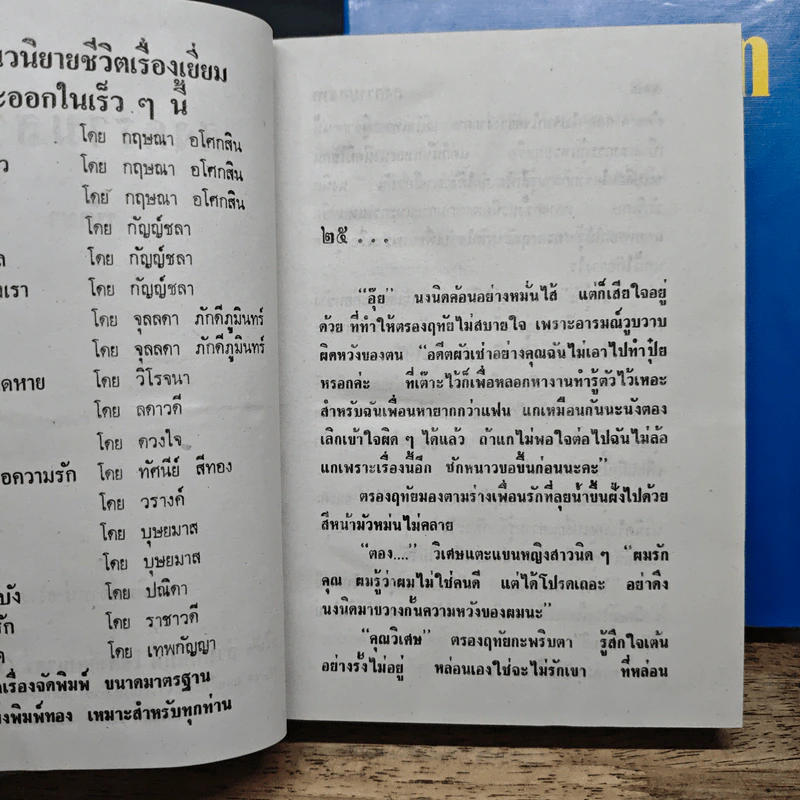 วนิยายชีวิตเรื่องเยี่ยม
ะออกในเร็ว ๆ นี้
โดย กฤษณา อโศกสิน
ว โดย กฤษณา อโศกสิน
โดย กฤษณา อโศกสิน
โดย กัญญ์ชลา
ล โดย กัญญ์ชลา
งเรา โดย กัญญ์ชลา
โดย จุลลดา ภักดีภูมินทร์
โดย จุลลดา ภักดีภูมินทร์
ดหาย โดย วิโรจนา
โดย ลดาวดี
โดย ดวงใจ
อความรัก โดย ทัศนีย์ สีทอง
โดย วรางค์
โดย บุษยมาส
โดย บุษยมาส
บัง โดย ปณิดา
รัก โดย ราชาวดี
ด โดย เทพกัญญา
เรื่องจัดพิมพ์ ขนาดมาตรฐาน
งพิมพ์ทอง เหมาะสำหรับทุกท่าน
๒๕ . . .
“อุ๊ย” นงนิดค้อนอย่างหมั่นไส้ แต่ก็เสียใจอยู่
ด้วย ที่ทำให้ตรองฤทัยไม่สบายใจ เพราะอารมณ์วูบวาบ
ผิดหวังของตน “อดีตผัวเช่าอย่างคุณฉันไม่เอาไปทำปุ๋ย
หรอกค่ะ ที่เต๊าะไว้ก็เพื่อหลอกหางานทำรู้ตัวไว้เหอะ
สำหรับฉันเพื่อนหายากกว่าแฟน แกเหมือนกันนะนังตอง
เลิกเข้าใจผิด ๆ ได้แล้ว ถ้าแกไม่พอใจต่อไปฉันไม่ล้อ
แกเพราะเรื่องนี้อีก ชักหนาวขอขึ้นก่อนนะคะ”
ตรองฤทัยมองตามร่างเพื่อนรักที่ลุยน้ำขึ้นฝั่งไปด้วย
สีหน้ามัวหม่นไม่คลาย
“ตอง....” วิเศษแตะแขนหญิงสาวนิด ๆ “ผมรัก
คุณ ผมรู้ว่าผมไม่ใช่คนดี แต่ได้โปรดเถอะ อย่าดึง
นงนิดมาขวางกั้นความหวังของผมนะ”
“คุณวิเศษ” ตรองฤทัยกะพริบตา รู้สึกใจเต้น
อย่างรั้งไม่อยู่ หล่อนเองใช่จะไม่รักเขา ที่หล่อน